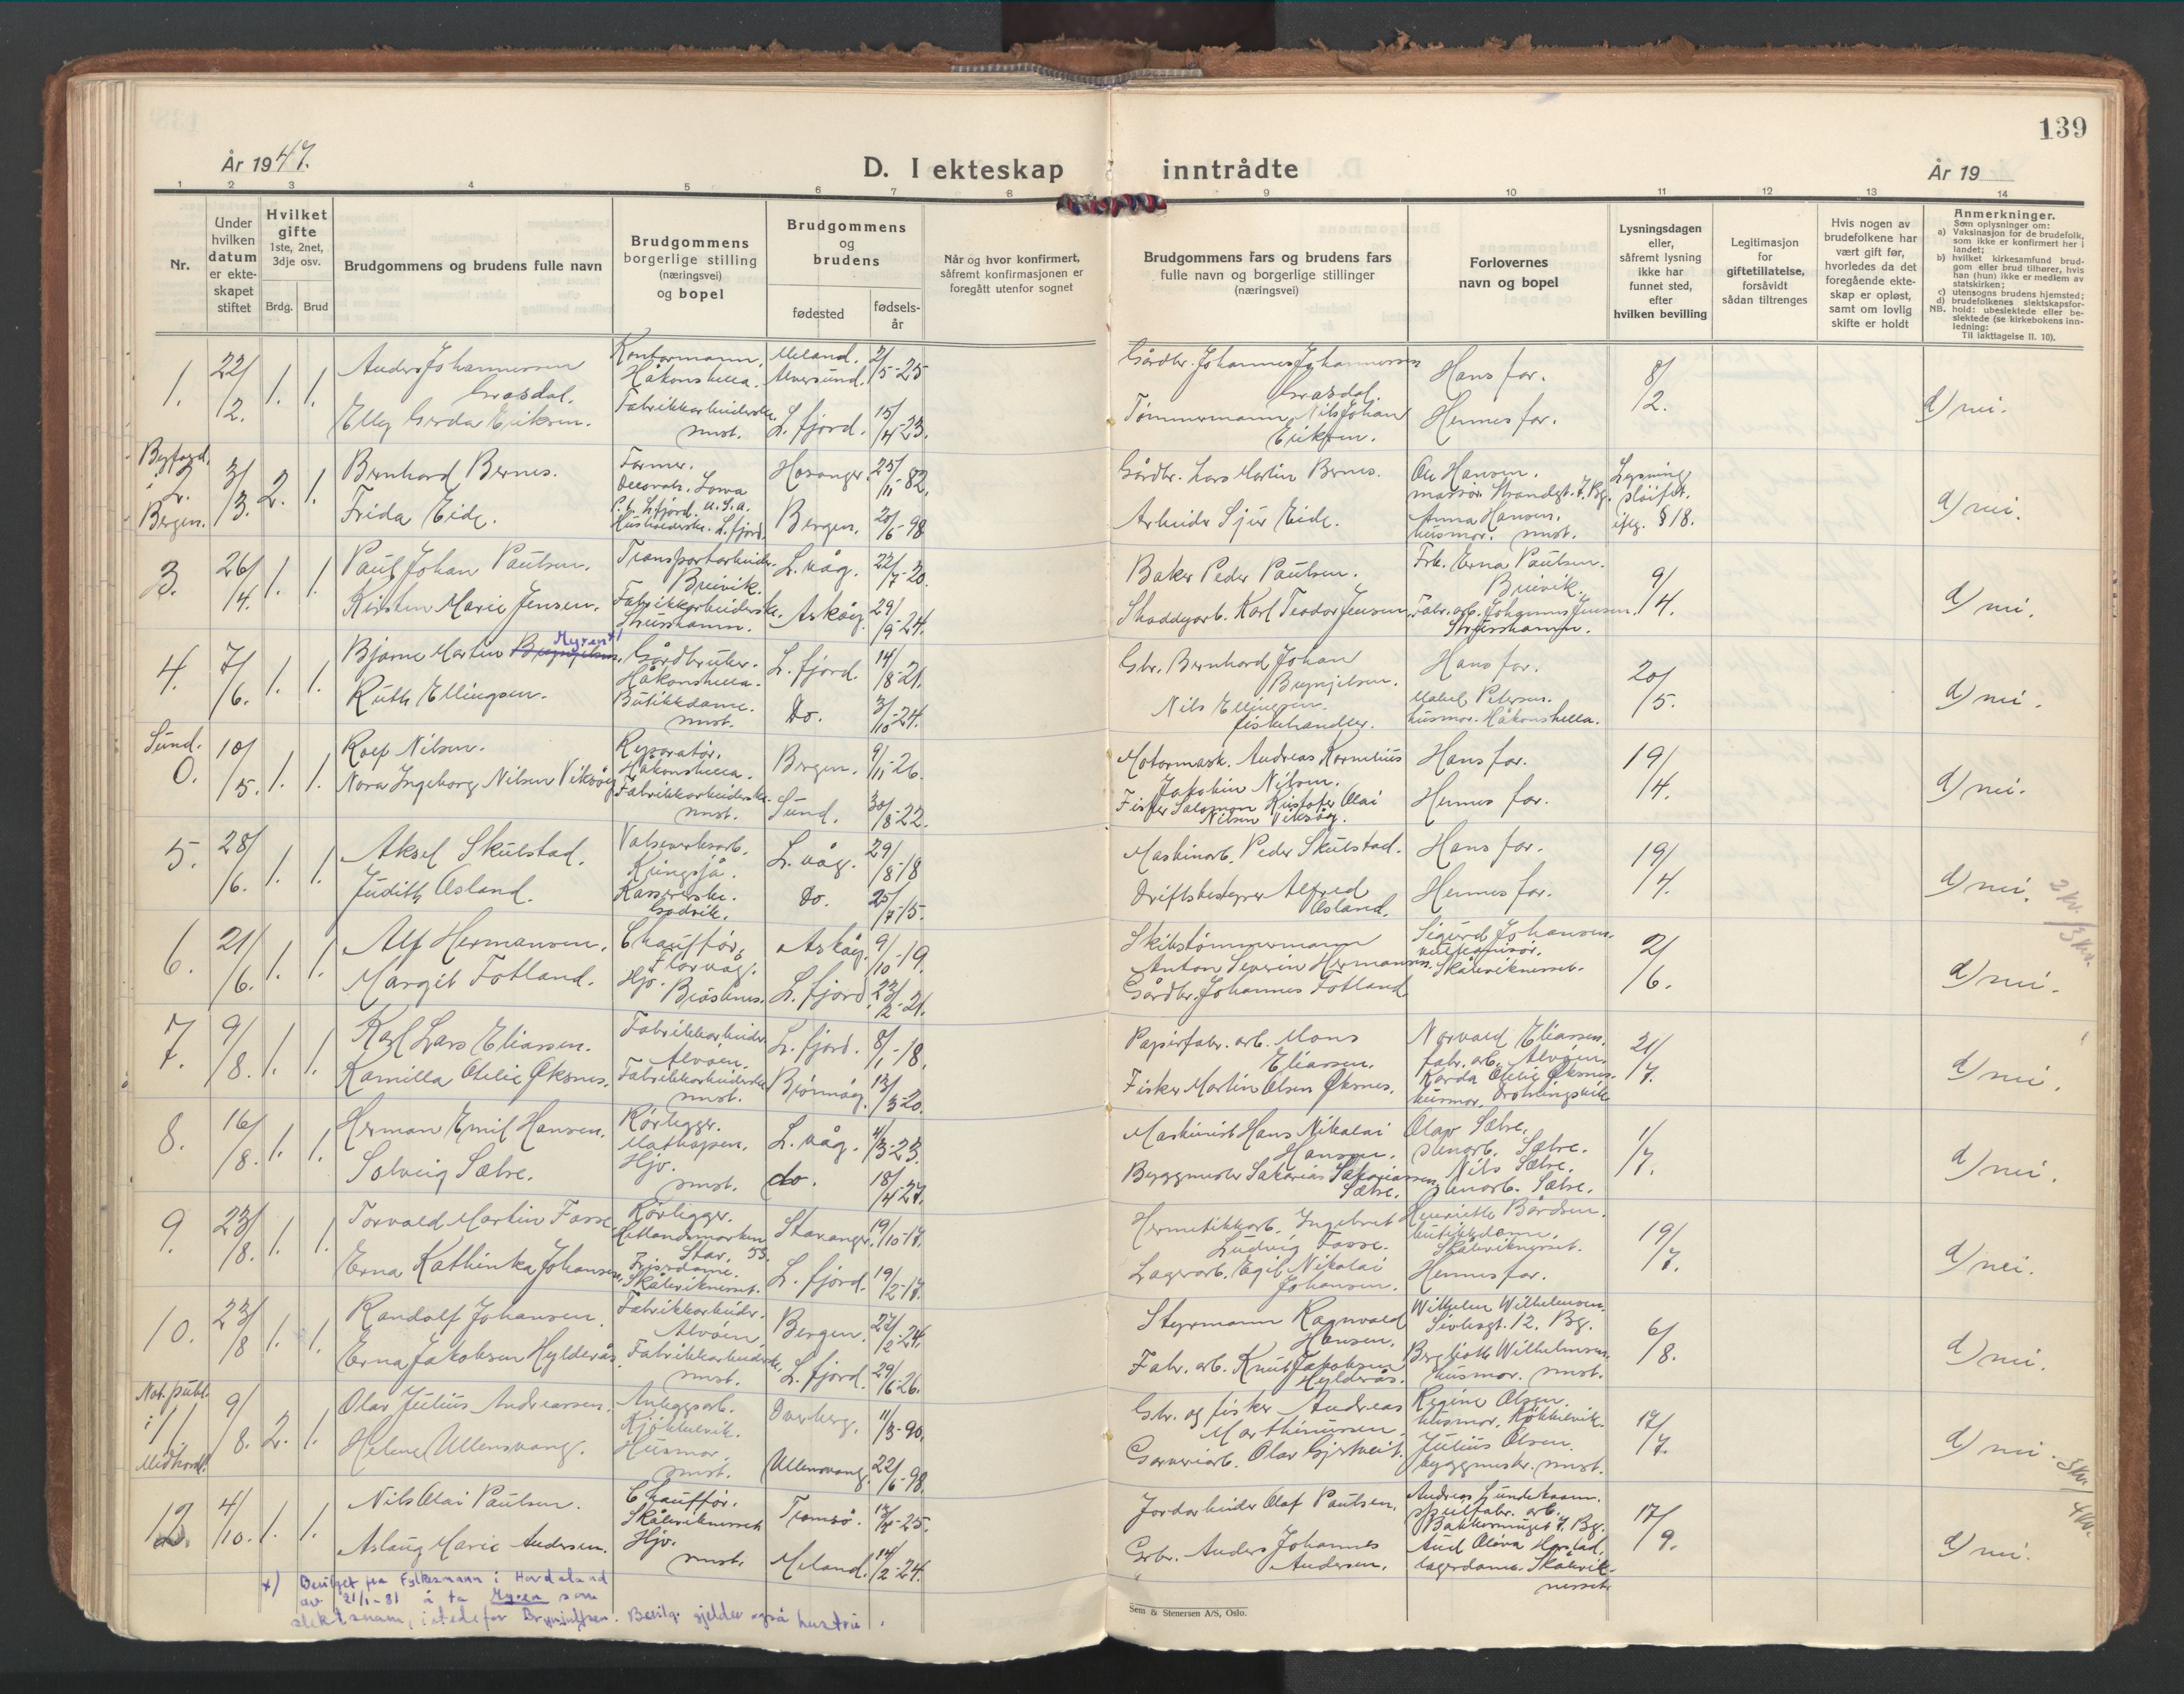 139
År 1947.
D. I ekteskap inntrådte
År 19
1 2 3 4 5 6 7 8 9 10 11 12 13 14
Nr.
Under hvilken datum er ekte-skapet stiftet
Hvilket gifte
1ste, 2net, 3dje osv.
Brdg. Brud
Brudgommens og brudens fulle navn
Brudgommens borgerlige stilling (næringsvei) og bopel
Brudgommens og brudens
fødested
fødsels-år
Når og hvor konfirmert, såfremt konfirmasjonen er foregått utenfor sognet
Brudgommens fars og brudens fars fulle navn og borgerlige stillinger (næringsvei)
Forlovernes navn og bopel
Lysningsdagen eller, såfremt lysning ikke har funnet sted, efter hvilken bevilling
Legitimasjon for giftetillatelse, forsåvidt sådan tiltrenges
Hvis nogen av brudefolkene har vært gift før, hvorledes da det foregående ekte-skap er opløst, samt om lovlig skifte er holdt
Anmerkninger.
Såsom oplysninger om:
a) Vaksinasjon for de brudefolk, som ikke er konfirmert her i landet;
b) hvilket kirkesamfund brud-gom eller brud tilhører, hvis han (hun) ikke er medlem av statskirken;
c) utensogns brudens hjemsted;
d) brudefolkenes slektskapsfor-hold: ubeslektede eller be-slektede (se kirkebokens inn-ledning:
NB. Til iakttagelse II. 10).
1. 22/2. 1. 1. Anders Johannessen Grasdal. Kontormann, Håkonshella. Meland. Alversund. 2/5-25 Gårdbr. Johannes Johannessen Grasdal. Hans far. 8/2. d) nei.
Elly Gerda Eriksen. Fabrikkarbeiderske. smst. L. fjord. 15/4-23. Tømmermann Nils Johan Eriksen. Hennes far.
Byfogd. i Bergen. 2. 3/3. 2. 1. Bernhard Bernes. Farmer. Decorah. Iowa U.S.A. P.t. L. fjord. Hosanger. 25/11-82. Gårdbr. Lars Martin Bernes. Ole Hansen. massør. Strandgt. 7. Bg. Lysning sløifet. iflg. § 18. d) nei.
Frida Eide. Husholderske. L. fjord. Bergen. 20/6-98 Arbeider Sjur Eide. Anna Hansen. husmor. smst.
3. 26/4. 1. 1. Paul Johan Paulsen. Transportarbeider. Breivik. L. våg. 22/7-20. Baker Peder Paulsen. Frk. Erna Paulsen. Breivik. 9/4. d) nei.
Kirsten Marie Jensen. Fabrikkarbeiderske. Strusshamn. Askøy. 29/9-24. Shoddyarb. Karl Teodor Jensen. Fabr. arb. Johannes Jensen. Strusshamn.
4. 7/6. 1. 1. Bjarne Martin Brynjelsen. Myren x) Gårdbruker. Håkonshella. L. fjord. 14/8-21. Gbr. Bernhard Johan Brynjelsen. Hans far. 20/5. d) nei.
Ruth Ellingsen. Butikkdame. smst. Do. 3/10-24. Nils Ellingsen. fiskehandler. Mabel Petersen. husmor. Håkonshella.
Sund. 0. 10/5. 1. 1. Rolf Nilsen. Reparatør. Håkonshella. Bergen. 9/11-26. Motormask. Andreas Kornelius Jakobin Nilsen. Hans far. 19/4. d) nei.
Nora Ingeborg Nilsen Viksøy. Fabrikkarbeiderske. smst. Sund. 30/8-22. Fisker Salomon Kristofer Olai Nilsen Viksøy. Hennes far.
5. 28/6. 1. 1. Aksel Skulstad. Valseverksarb. Kringsjå. L. våg. 29/8-18 Maskinarb. Peder Skulstad. Hans far. 19/4. d) nei.
Judith Åsland. Kassererske. Godvik. Do. 25/7-15. Driftsbestyrer Alfred Åsland. Hennes far.
2 kv. / 3 kv.
6. 21/6. 1. 1. Alf Hermansen. Chauffør. Florvåg. Askøy. 9/10-19. Skibstømmermann Anton Severin Hermansen. Sigurd Johansen. Skålevikneset. 2/6. d) nei.
Margit Fotland. Hjv. Brøstnes. L. fjord. 23/2-21. Gårdbr. Johannes Fotland.
7. 9/8. 1. 1. Karl Lars Eliassen. Fabrikkarbeider. Alvøen. L. fjord. 8/1-18. Papirfabr. arb. Mons Eliassen. Norvald Eliassen. fabr. arb. Alvøen. 21/7. d) nei.
Kamilla Otelie Øksnes. Fabrikkarbeiderske. smst. Bjørnøy. 13/3-20. Fisker Martin Olsen Øksnes. Karda Otelie Øksnes. husmor. Drotningsvik
8. 16/8. 1. 1. Herman Emil Hansen. Rørlegger. Mathopen. L. våg. 4/3-23. Maskinist Hans Nikolai Hansen. Olav Sætre. stenarb. Sætre. 1/7. d) nei.
Solveig Sætre. Hjv. smst. do. 18/4-27. Byggmester Sakarias Sakariassen Sætre. Nils Sætre. stenarb. Sætre.
9. 23/8. 1. 1. Torvald Martin Fosse. Rørlegger. Hetlandsmarken 53. Stav. Stavanger. 19/10-17. Hermetikkarb. Ingebret Ludvig Fosse. Henriette Bårdsen. butikkdame. Skålevikneset. 19/7. d) nei.
Erna Kathinka Johansen. Frisørdame. Skålevikneset. L. fjord. 19/2-17. Lagerarb. Egil Nikolai Johansen. Hennes far.
10. 23/8 1. 1. Randolf Johansen. Fabrikkarbeider. Alvøen Bergen. 27/2-24. Styrmann Ragnvald Hansen. Wilhelm Wilhelmsen. Sivlesgt. 12. Bg. 6/8. d) nei.
Erna Jakobsen Hylderås. Fabrikkarbeiderske. smst. L. fjord. 29/6-26. Fabr. arb. Knut Jakobsen Hylderås. Bergliott Wilhelmsen. husmor. smst.
Not. publ. i Midthordl. 11. 9/8. 2. 1. Olav Julius Andreassen. Anleggsarb. Kjøkkelvik. Daviberg. 11/3-90. Gbr. og fisker Andreas Marthinussen. Regine Olsen. husmor. Kjøkkelvik. 17/7. d) nei.
Helene Ullensvang. Husmor. smst. Ullensvang. 22/6-98. Garveriarb. Olav Gjertveit. Julius Olsen. byggmester. smst.
3 kv. / 4 kv.
12. 4/10. 1. 1. Nils Olai Paulsen. Chauffør. Skålevikneset. Tromsø. 13/7-25. Jordarbeider Olaf Paulsen. Andreas Gundekaam. 17/9. d) nei.
Aslaug Marie Andersen. Hjv. smst. Meland. 14/2-24. Gbr. Anders Johannes Andersen. Aud Olava Harstad. lagerdame. Skålevikneset.
x) Bevilget fra Fylkesmann i Hordaland
av 21/1-81 å ta Myren som
slektsnavn, istedefor Brynjulfsen. Bevilg. gjelder også hustru.
Sem & Stenersen A/S, Oslo.